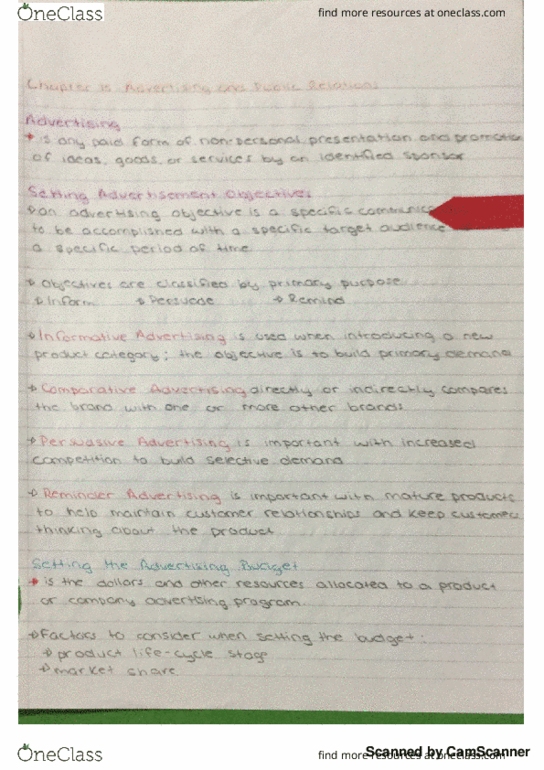 OneClass
find more resources at oneclass.com
Chapter 15 Advertising and Public Relations
Advertising
is any paid form of non-personal presentation and promotion
of ideas, goods, or services by an identified sponsor
Setting Advertisement Objectives
an advertising objective is a specific
to be accomplished with a specific target audience
a specific period of time
Objectives are classified by primary purpose
Inform Persuade Remind
Informative Advertising is used when introducing a new
product category; the objective is to build primary demand
Comparative Advertising directly or indirectly compares
the brand with one or more other brands
Persuasive Advertising is important with increased
competition to build selective demand
Reminder Advertising is important with mature products
to help maintain customer relationships and keep customers
thinking about the product
Setting the Advertising Budget
is the dollars and other resources allocated to a product
or company advertising program.
Factors to consider when setting the budget:
product life-cycle stage
market share
OneClass
find more resources at oneclass.com
Scanned by CamScanner